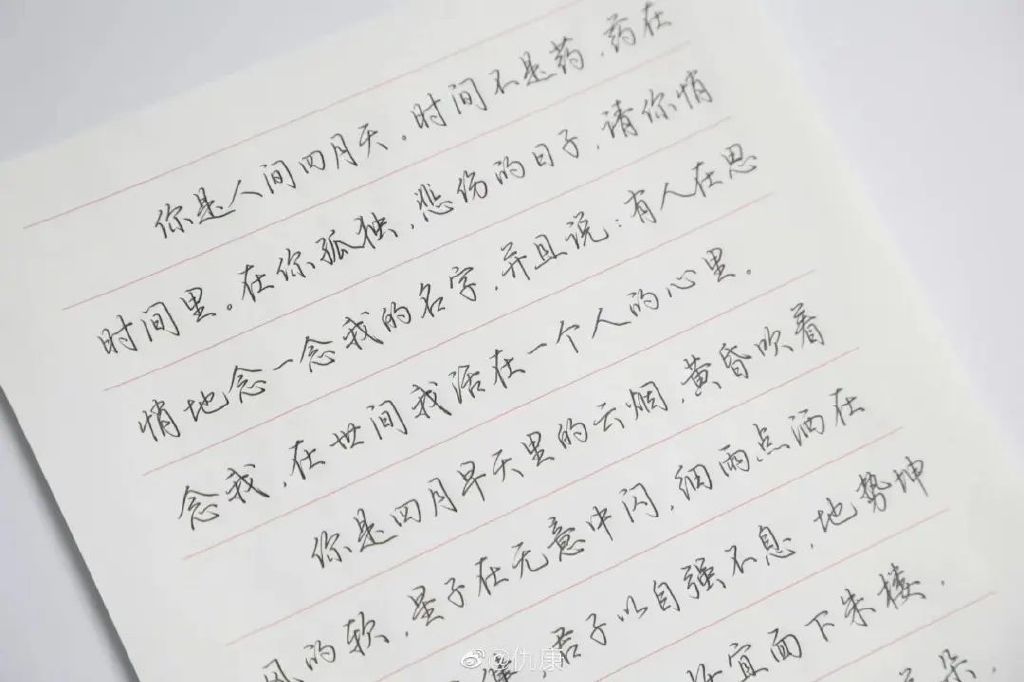 你是人间四月天，时间不是药，药在
时间里。在你孤独，悲伤的日子，请你悄
悄地念一念我的名字，并且说：有人在思
念我，在世间我活在一个人的心里。
你是四月早天里的云烟，黄昏吹着
风的软，星子在无意中闪，细雨点洒在
君子以自强不息，地势坤
宜面下朱楼，
朵，
@仇康